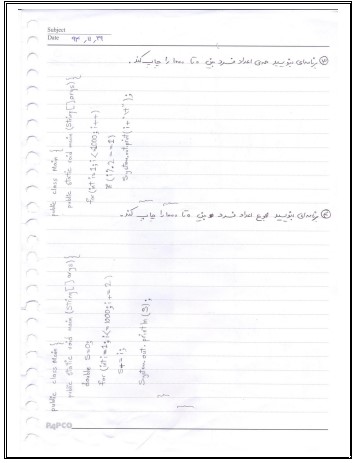 Subject
Date ۹۳,۷,۲۹
⑦ برنامه‌ای بنویسید همه‌ی اعداد فرد بین ۰ تا ۱۰۰۰ را چاپ کند.
public class Main {
public static void main (String [] args) {
for (int i=1; i<1000; i++)
if (i%2==1)
System.out.print (i+"\t");
برنامه‌ای بنویسید جمع اعداد فرد بین ۰ تا ۱۰۰۰ را چاپ کند.
public class Main {
public static void main (String [] args) {
double S=0;
for (int i=1; i<=1000; i+=2)
S+=i;
System.out.println (S);
PAPCO